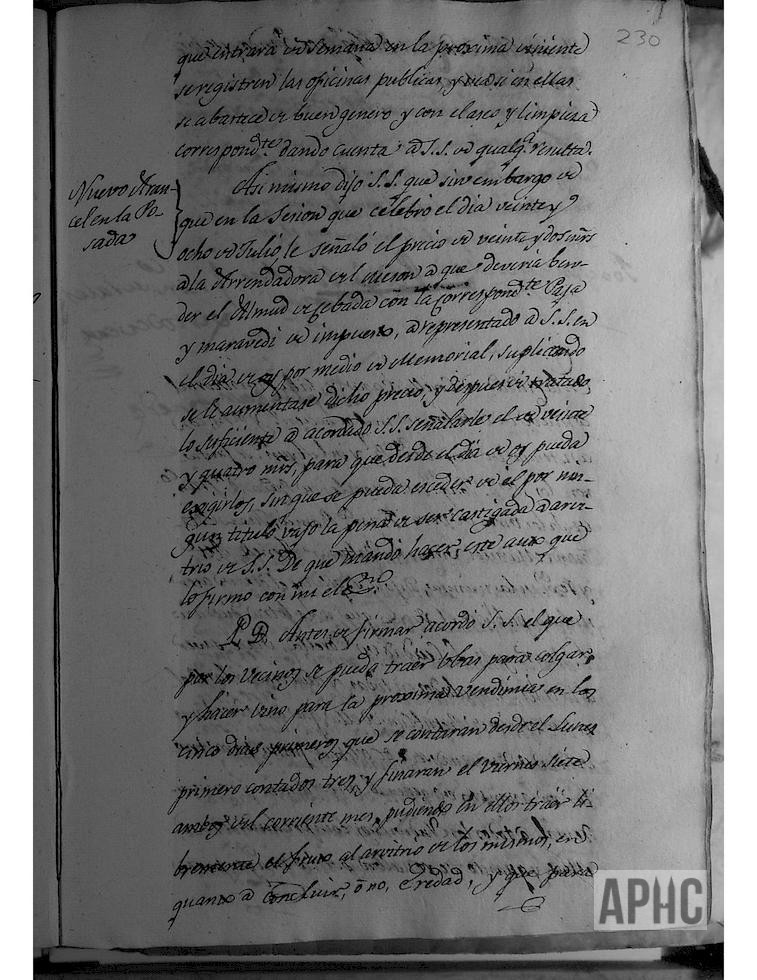 230
que entrara de semana en la proxima viniente
se registren las oficinas publicas, y vea si en ellas
se abastece de buen genero y con el aseo y limpieza
correspond.te dando cuenta à S.S. de qualq.a resulta.
Nuevo Aran-
cel en la Po-
sada
Asi mismo dijo S.S. que sin embargo de
que en la Sesion que celebrò el dia veinte y
ocho de Julio, le señaló el precio de veinte y dos mrs
a la Arrendadora del meson à que deveria ben-
der el Almud de Cebada con la correspond.te Paja
y maravedi de impuesto, à representado à S.S. en
el dia de oy por medio de Memorial, suplicando
se le aumentase dicho precio, y despues de tratado
lo suficiente à acordado S.S. señalarle el de veinte
y quatro mrs, para que desde el dia de oy pueda
exigirlos, sin que se pueda exceder de èl por nin-
gun titulo vajo la pena de ser castigada à arvi-
trio de S.S. De que mandó hacer este auto que
lo firmo con mi el Ess.no
P.D. Antes de firmar acordò S.S. el que
por los Vecinos se pueda traer ubas para colgar,
y hacer vino para la proxima Vendimia en los
cinco dias primeros que se contaran desde el Lunes
primero contados tres, y finaran el Viernes siete
ambos del corriente mes, pudiendo en ellos traer li-
bremente el fruto al arvitrio de los mismos, en
quanto à concluir, ò no, Eredad, y que para
APHC